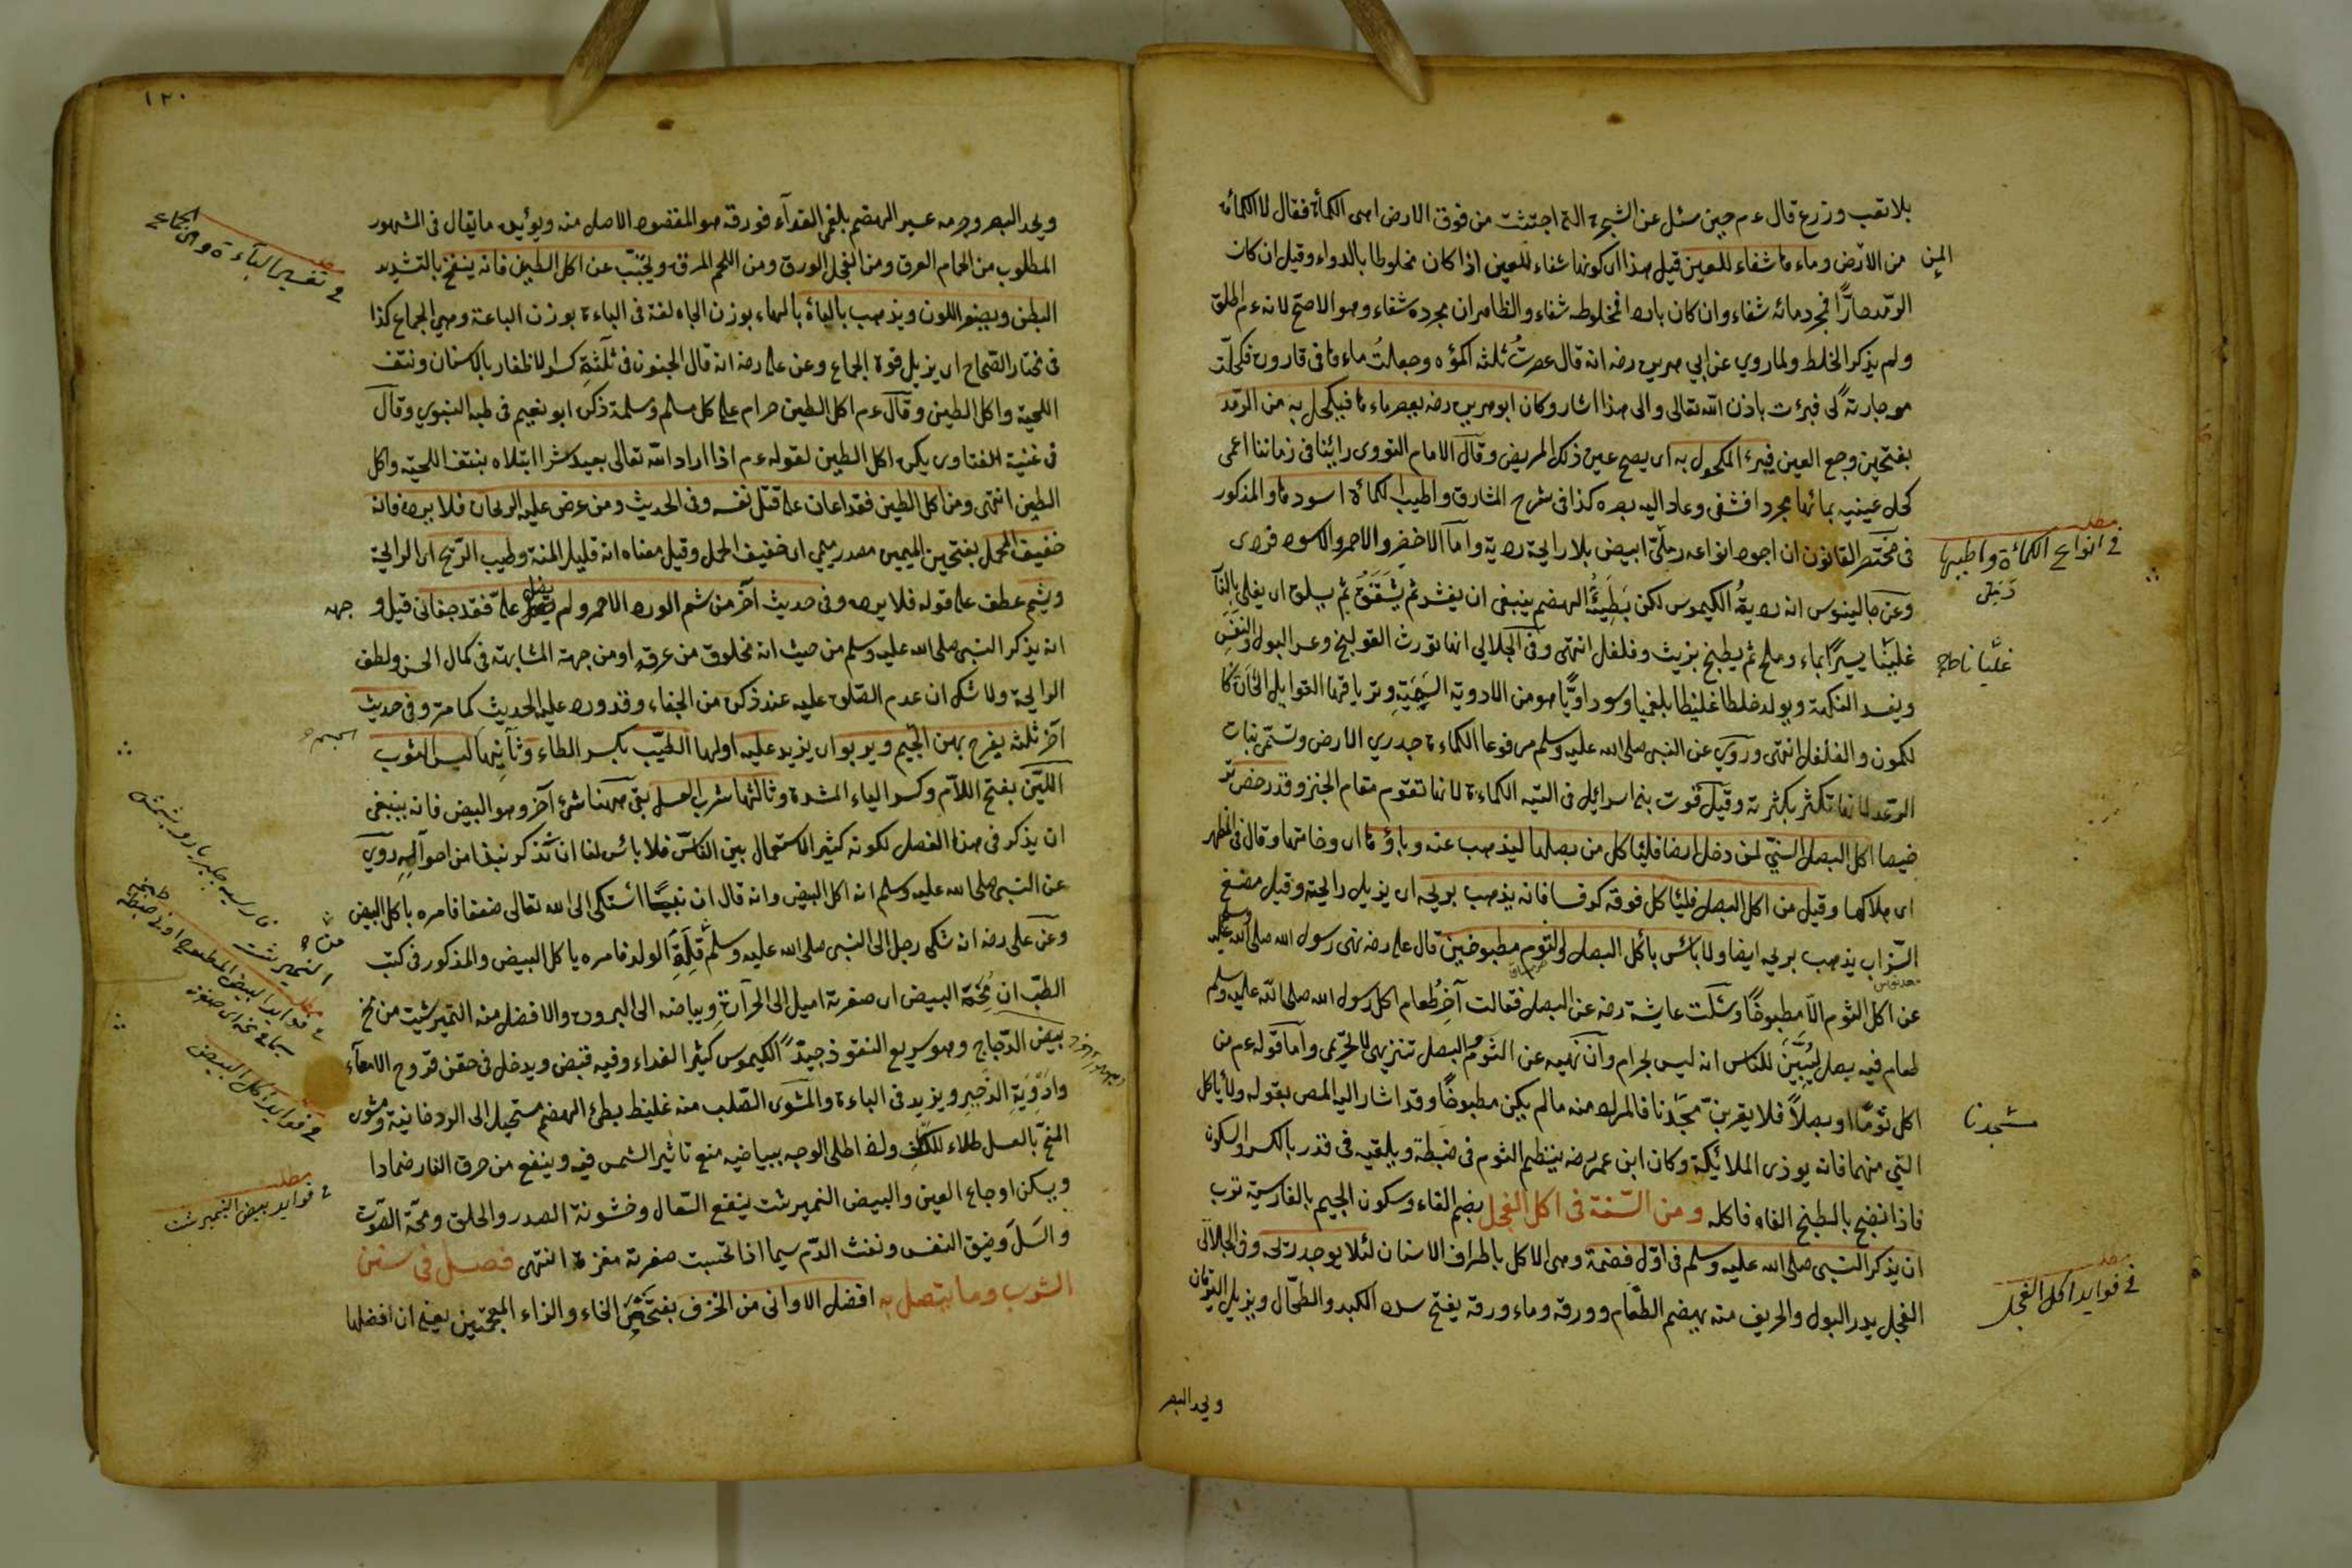 بلا تعب وزرع قال عم حين سئل عن الشجرة التى اجتثت من فوق الارض اهى الكمأة فقال لا الكمأة
من الارض وماءها شفاء للعين قيل هذا اى كونها شفاء للعين اذا كان مخلوطا بالدواء وقيل ان كان
المن
الرمد حارًّا فمجرد مائه شفاء وان كان باردا فمخلوطه شفاء والظاهر ان مجرده شفاء وهو الاصح لانه عم اطلق
ولم يذكر الخلط ولما روي عن ابي هريرة رضه انه قال عصرتُ ثلثة اكمؤه وجعلتُ ماءها فى قارورة فكحلت
به جارية لى فبرئت باذن الله تعالى والى هذا اشار وكان ابو هريرة رضه يعصر ماءها فيكحل به من الرمد
بفتحتين وجع العين فيبرء المكحول به اى يصح عين ذلك المريض وقال الامام النووى رائينا فى زماننا اعمى
كحل عينيه بمائها مجردا فشفى وعاد اليه بصره كذا فى شرح المشارق واطيب الكمأة اسودها والمذكور
فى مختصر القانون ان اجود انواعه رملىّ ابيض بلا رايحة ردية واما الاخضر والاحمر والاسود فردى
مطلب
فى انواع الكمأة واطيبها
وعن جالينوس انه ردية الكيموس لكن بَطِيئَةُ الهضم ينبغى ان يقشر ثم يُشَقَّقَ ثم يسلق اى يغلى بالنار
غليانا يسيرًا بماء وملح ثم يطبخ بزيت وفلفل انتهى وفى الجلالي انها تورث القولنج وعسر البول والنفس
ويفسد النكهة ويولد خلطا غليظا بلغميا وسوداويًّا هو من الادوية السَّمِّيَّةِ وترياقها التوابل الحارة كا
لكمون والفلفل انتهى وروى عن النبى صلى الله عليه وسلم مرفوعا الكماءة جدري الارض وتسمى نبات
الرعد لانها تكثر بكثرته وقيل قوت بنى اسرائيل فى التيه الكماءة لانها تقوم مقام الخبز وقد رخص تر
خيصا اكل البصل النىّ لمن دخل ارضا فلياكل من بصلها ليذهب عنه وباؤها اى وخامتها وقال فى المطهر
اى هلاكها وقيل من اكل البصل فلياكل فوقه كرفسا فانه يذهب بريحه اى يزيل رايحته وقيل مضغ
السذاب يذهب بريحه ايضا ولا بائس بأكل البصل او الثوم مطبوخين قال على رضه نهى رسول الله صلى الله عليه وسلم
عن اكل الثوم الّا مطبوخًا وسئلت عايشة رضه عن البصل فقالت آخر طعام اكل رسول الله صلى الله عليه وسلم
طعام فيه بصل ليُبَيِّنَ للناس انه ليس بحرام وان نهيه عن الثوم والبصل تنزيهى لا تحريمى واما قوله عم من
اكل ثومًا او بصلاً فلا يقربنّ مسجدنا فالمراد منه ما لم يكن مطبوخًا وقد اشار اليه المص بقوله ولا يأكل
مسجدنا
النيّ منهما فانه يوذى الملائكة وكان ابن عمر رضه ينظم الثوم فى خيطه ويلقيه فى قدر بالكسر والسكون
فاذا نضج بالطبخ القاه فاكله ومن السنة فى اكل الفجل بضم الفاء وسكون الجيم بالفارسية ترب
ان يذكر النبى صلى الله عليه وسلم فى اول قضمة وهى الاكل باطراف الاسنان لئلا يوجد ريحه وفى الجلالى
الفجل يدر البول والحريف منه يهضم الطعام وورقه وماء ورقه يفتح سدد الكبد والطحال ويزيل اليرقان
مطلب
فى فوايد اكل الفجل
ويحد البصر
١٢٠
ويحد البصر وجرمه عسير الهضم بلغمى الغداء فورقه هو المقصود الاصلى منه ويؤيده ما يقال فى المشهور
المطلوب من الحمام العرق ومن الفجل الورق ومن اللحم المرق ويجتنب عن اكل الطين فانه ينفخ بالتشديد
مطلب
فى تفسير الباءة وهى الجماع
البطن ويصفر اللون ويذهب بالباه بالهاء بوزن الجاه لغة فى الباءة بوزن الباعة وهى الجماع كذا
فى مختار الصحاح اى يزيل قوة الجماع وعن على رضه انه قال الجنون فى ثلثةٍ كسر الاظفار بالاسنان ونتف
اللحية واكل الطين وقال عم اكل الطين حرام على كل مسلم ومسلمة ذكره ابو نعيم فى طبه النبوي وقال
فى غنية الفتاوى يكره اكل الطين لقوله عم اذا اراد الله تعالى بعبده شرا ابتلاه بنتف اللحية واكل
الطين انتهى ومن اكل الطين فقد اعان على قتل نفسه وفى الحديث ومن عرض عليه الريحان فلا يرده فانه
خفيف المحمل بفتحتين الميمين مصدر ميمي اى خفيف الحمل وقيل معناه انه قليل المنة وطيب الريح اى الرايحة
ويشم عطف على قوله فلا يرده وفى حديث آخر من شم الورد الاحمر ولم يصل علىّ فقد جفانى قيل و
جهه
انه يذكر النبى صلى الله عليه وسلم من حيث انه مخلوق من عرقه او من جهة المشابهة فى كمال الحسن ولطف
الرايحة ولا شك ان عدم الصلوة عليه عند ذكره من الجفاء وقد ورد عليه الحديث كما مر وفى حديث
آخر ثلثة يفرح بهن الجسم ويربو اى يزيد عليه اولها الطيب بكسر الطاء وثانيها لبس الثوب
اللَيّن بفتح اللام وكسر الياء المشددة وثالثها شرب العسل بقى ههنا شئ آخر وهو البيض فانه ينبغى
ان يذكر فى هذا الفصل لكونه كثير الاستعمال بين الناس فلا بائس لنا ان نذكر نبذا من احواله روي
عن النبى صلى الله عليه وسلم انه اكل البيض وانه قال ان نبيًّا اشتكى الى الله تعالى ضعفا فامره باكل البيض
وعن على رضه انه شكى رجل الى النبى صلى الله عليه وسلم قلة الولد فامره ياكل البيض والمذكور فى كتب
الطب ان مُحَّة البيض اى صفرته اميل الى الحرارة وبياضه الى البرودة والافضل منه النميرشت من مخ
بيض الدجاج وهو سريع النفوذ جيد الكيموس كثير الغداء وفيه قبض ويدخل فى حقن قروح الامعاء
وادوية الزحير ويزيد فى الباءة والمشوى الصلب منه غليظ بطئ الهضم مستحيل الى الردخانية ومشوى
المخ بالعسل طلاء للكلف ولو اطلى الوجه ببياضه منع تاثير الشمس فيه وينفع من حرق النار ضمادا
ويسكن اوجاع العين والبيض النميرشت ينفع السعال وخشونة الصدر والحلق وبحة الصوت
والسل وضيق النفس ونفث الدم سيما اذا تحسيت صفرته مفترة انتهى فصل فى سنن
مطلب
فى فوايد اكل البيض
مطلب
فى فوايد بيض النميرشت
الشرب وما يتصل به افضل الاوانى من الخزف بفتحتين الخاء والزاء المعجمتين يعنى ان افضلها